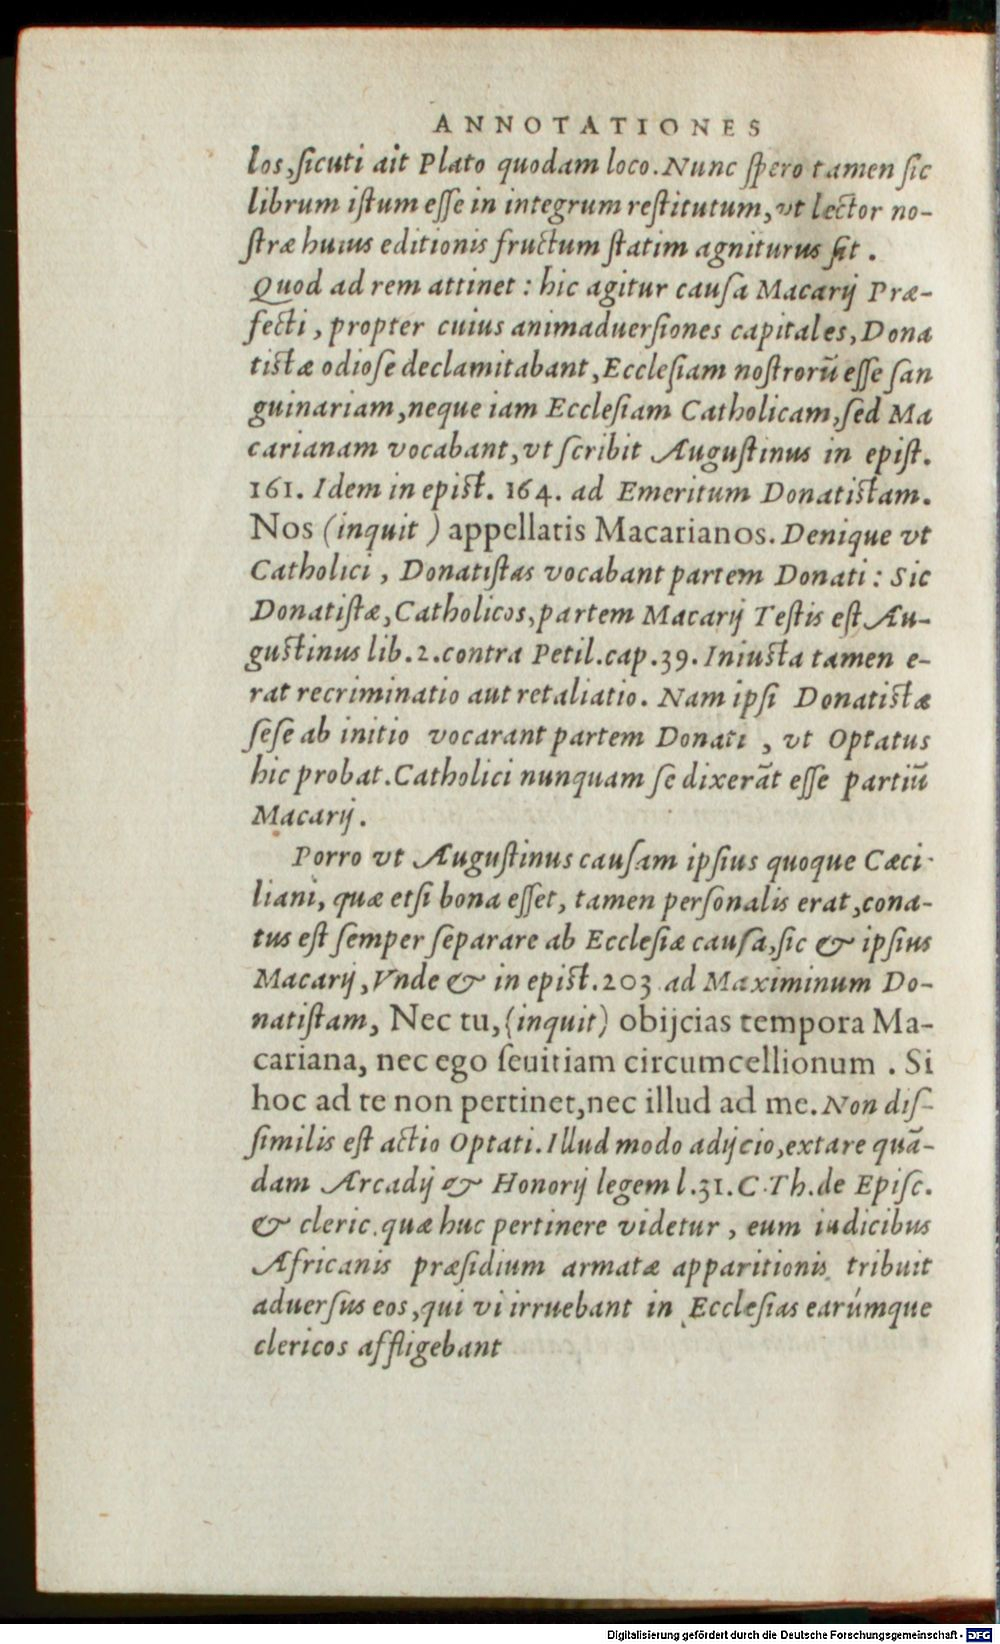 ANNOTATIONES
los, ſicuti ait Plato quodam loco. Nunc ſpero tamen ſic
librum iſtum eſſe in integrum reſtitutum, vt lector no-
ſtræ huius editionis fructum ſtatim agniturus ſit .
Quod ad rem attinet : hic agitur cauſa Macarij Præ-
fecti , propter cuius animaduerſiones capitales, Dona
tiſtæ odioſe declamitabant, Eccleſiam noſtrorū eſſe ſan
guinariam, neque iam Eccleſiam Catholicam, ſed Ma
carianam vocabant, vt ſcribit Auguſtinus in epiſt.
161. Idem in epiſt. 164. ad Emeritum Donatiſtam.
Nos (inquit ) appellatis Macarianos. Denique vt
Catholici , Donatiſtas vocabant partem Donati : Sic
Donatiſtæ, Catholicos, partem Macarij Teſtis eſt Au-
guſtinus lib. 2. contra Petil. cap. 39. Iniuſta tamen e-
rat recriminatio aut retaliatio. Nam ipſi Donatiſtæ
ſeſe ab initio vocarant partem Donati , vt Optatus
hic probat. Catholici nunquam ſe dixerāt eſſe partiū
Macarij .
Porro vt Auguſtinus cauſam ipſius quoque Cæci-
liani, quæ etſi bona eſſet, tamen perſonalis erat, cona-
tus eſt ſemper ſeparare ab Eccleſiæ cauſa, ſic & ipſius
Macarij, Vnde & in epiſt. 203 ad Maximinum Do-
natiſtam, Nec tu, (inquit) obijcias tempora Ma-
cariana, nec ego ſeuitiam circumcellionum . Si
hoc ad te non pertinet, nec illud ad me. Non diſ-
ſimilis eſt actio Optati. Illud modo adijcio, extare quā-
dam Arcadij & Honorij legem l. 31. C. Th. de Epiſc.
& cleric. quæ huc pertinere videtur , eum iudicibus
Africanis præſidium armatæ apparitionis tribuit
aduerſus eos, qui vi irruebant in Eccleſias earúmque
clericos affligebant
Digitalisierung gefördert durch die Deutsche Forschungsgemeinschaft - DFG